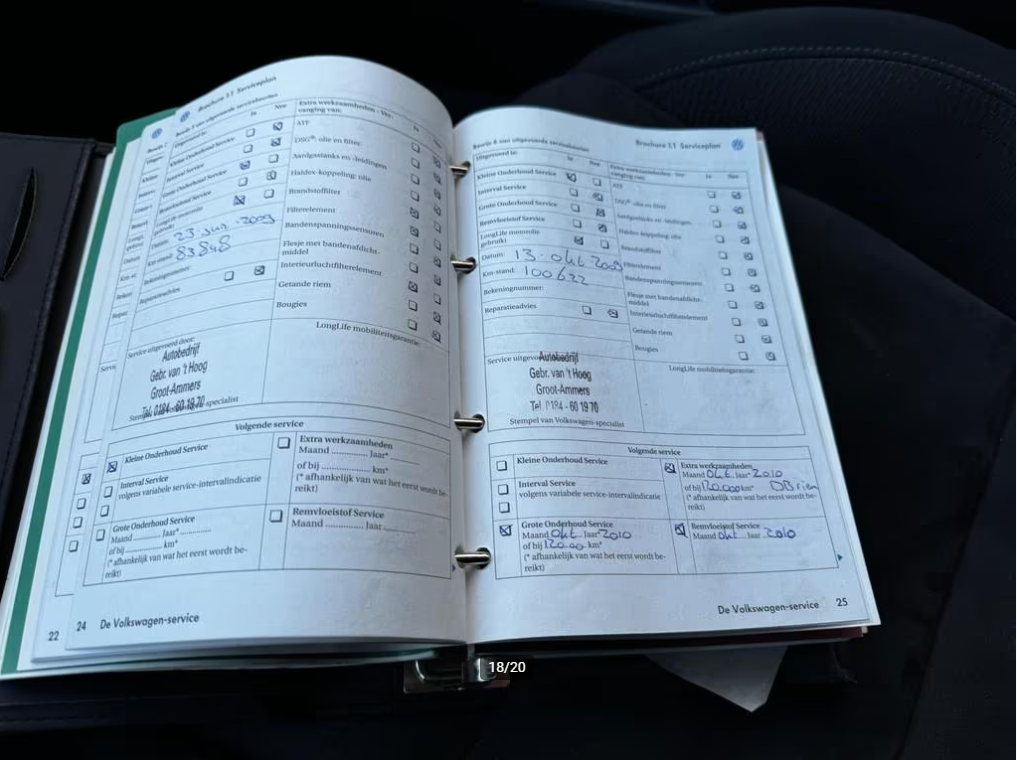 Brochure 1.1 Serviceplan
Bewijs 7 van uitgevoerde servicebeurten
Ja
Nee
Extra werkzaamheden - Ver-
vanging van:
Ja
Kleine Onderhoud Service
ATF
Interval Service
DSG®- olie en filter
Grote Onderhoud Service
Aardgastanks en -leidingen
Remvloeistof Service
Haldex-koppeling: olie
LongLife motorolie
Brandstoffilter
Datum: 23 jun 2009
Filterelement
Km-stand: 83848
Bandenspanningssensoren
Rekeningnummer:
Flesje met bandenafdicht-
middel
Reparatieadvies
Interieurluchtfilterelement
Getande riem
Bougies
LongLife mobiliteitsgarantie:
Service uitgevoerd door:
Autobedrijf
Gebr. van 't Hoog
Groot-Ammers
Tel. 0184 - 60 19 70
Volgende service
Kleine Onderhoud Service
Interval Service
volgens variabele service-intervalindicatie
Grote Onderhoud Service
Maand .......... Jaar* ..........
of bij .......... km*
(* afhankelijk van wat het eerst wordt be-
reikt)
Extra werkzaamheden
Maand .......... Jaar* ..........
of bij .......... km*
(* afhankelijk van wat het eerst wordt be-
reikt)
Remvloeistof Service
Maand .......... Jaar ..........
22
24 De Volkswagen-service
Brochure 1.1 Serviceplan
Bewijs 8 van uitgevoerde servicebeurten
Uitgevoerd is:
Ja
Nee
Extra werkzaamheden - Ver-
vanging van:
Ja
Nee
Kleine Onderhoud Service
ATF
Interval Service
DSG®- olie en filter
Grote Onderhoud Service
Aardgastanks en -leidingen
Remvloeistof Service
Haldex-koppeling: olie
LongLife motorolie
gebruikt
Brandstoffilter
Datum: 13 okt 2009
Filterelement
Km-stand: 100622
Bandenspanningssensoren
Rekeningnummer:
Flesje met bandenafdicht-
middel
Reparatieadvies
Interieurluchtfilterelement
Getande riem
Bougies
LongLife mobiliteitsgarantie:
Service uitgevoerd
Autobedrijf
Gebr. van 't Hoog
Groot-Ammers
Tel. 0184 - 60 19 70
Stempel van Volkswagen-specialist
Volgende service
Kleine Onderhoud Service
Interval Service
volgens variabele service-intervalindicatie
Grote Onderhoud Service
Maand okt Jaar* 2010
of bij km*
(* afhankelijk van wat het eerst wordt be-
reikt)
Extra werkzaamheden
Maand okt Jaar* 2010
of bij 120.000 km*
(* afhankelijk van wat het eerst wordt be-
reikt)
Remvloeistof Service
Maand okt Jaar 2010
De Volkswagen-service 25
18/20